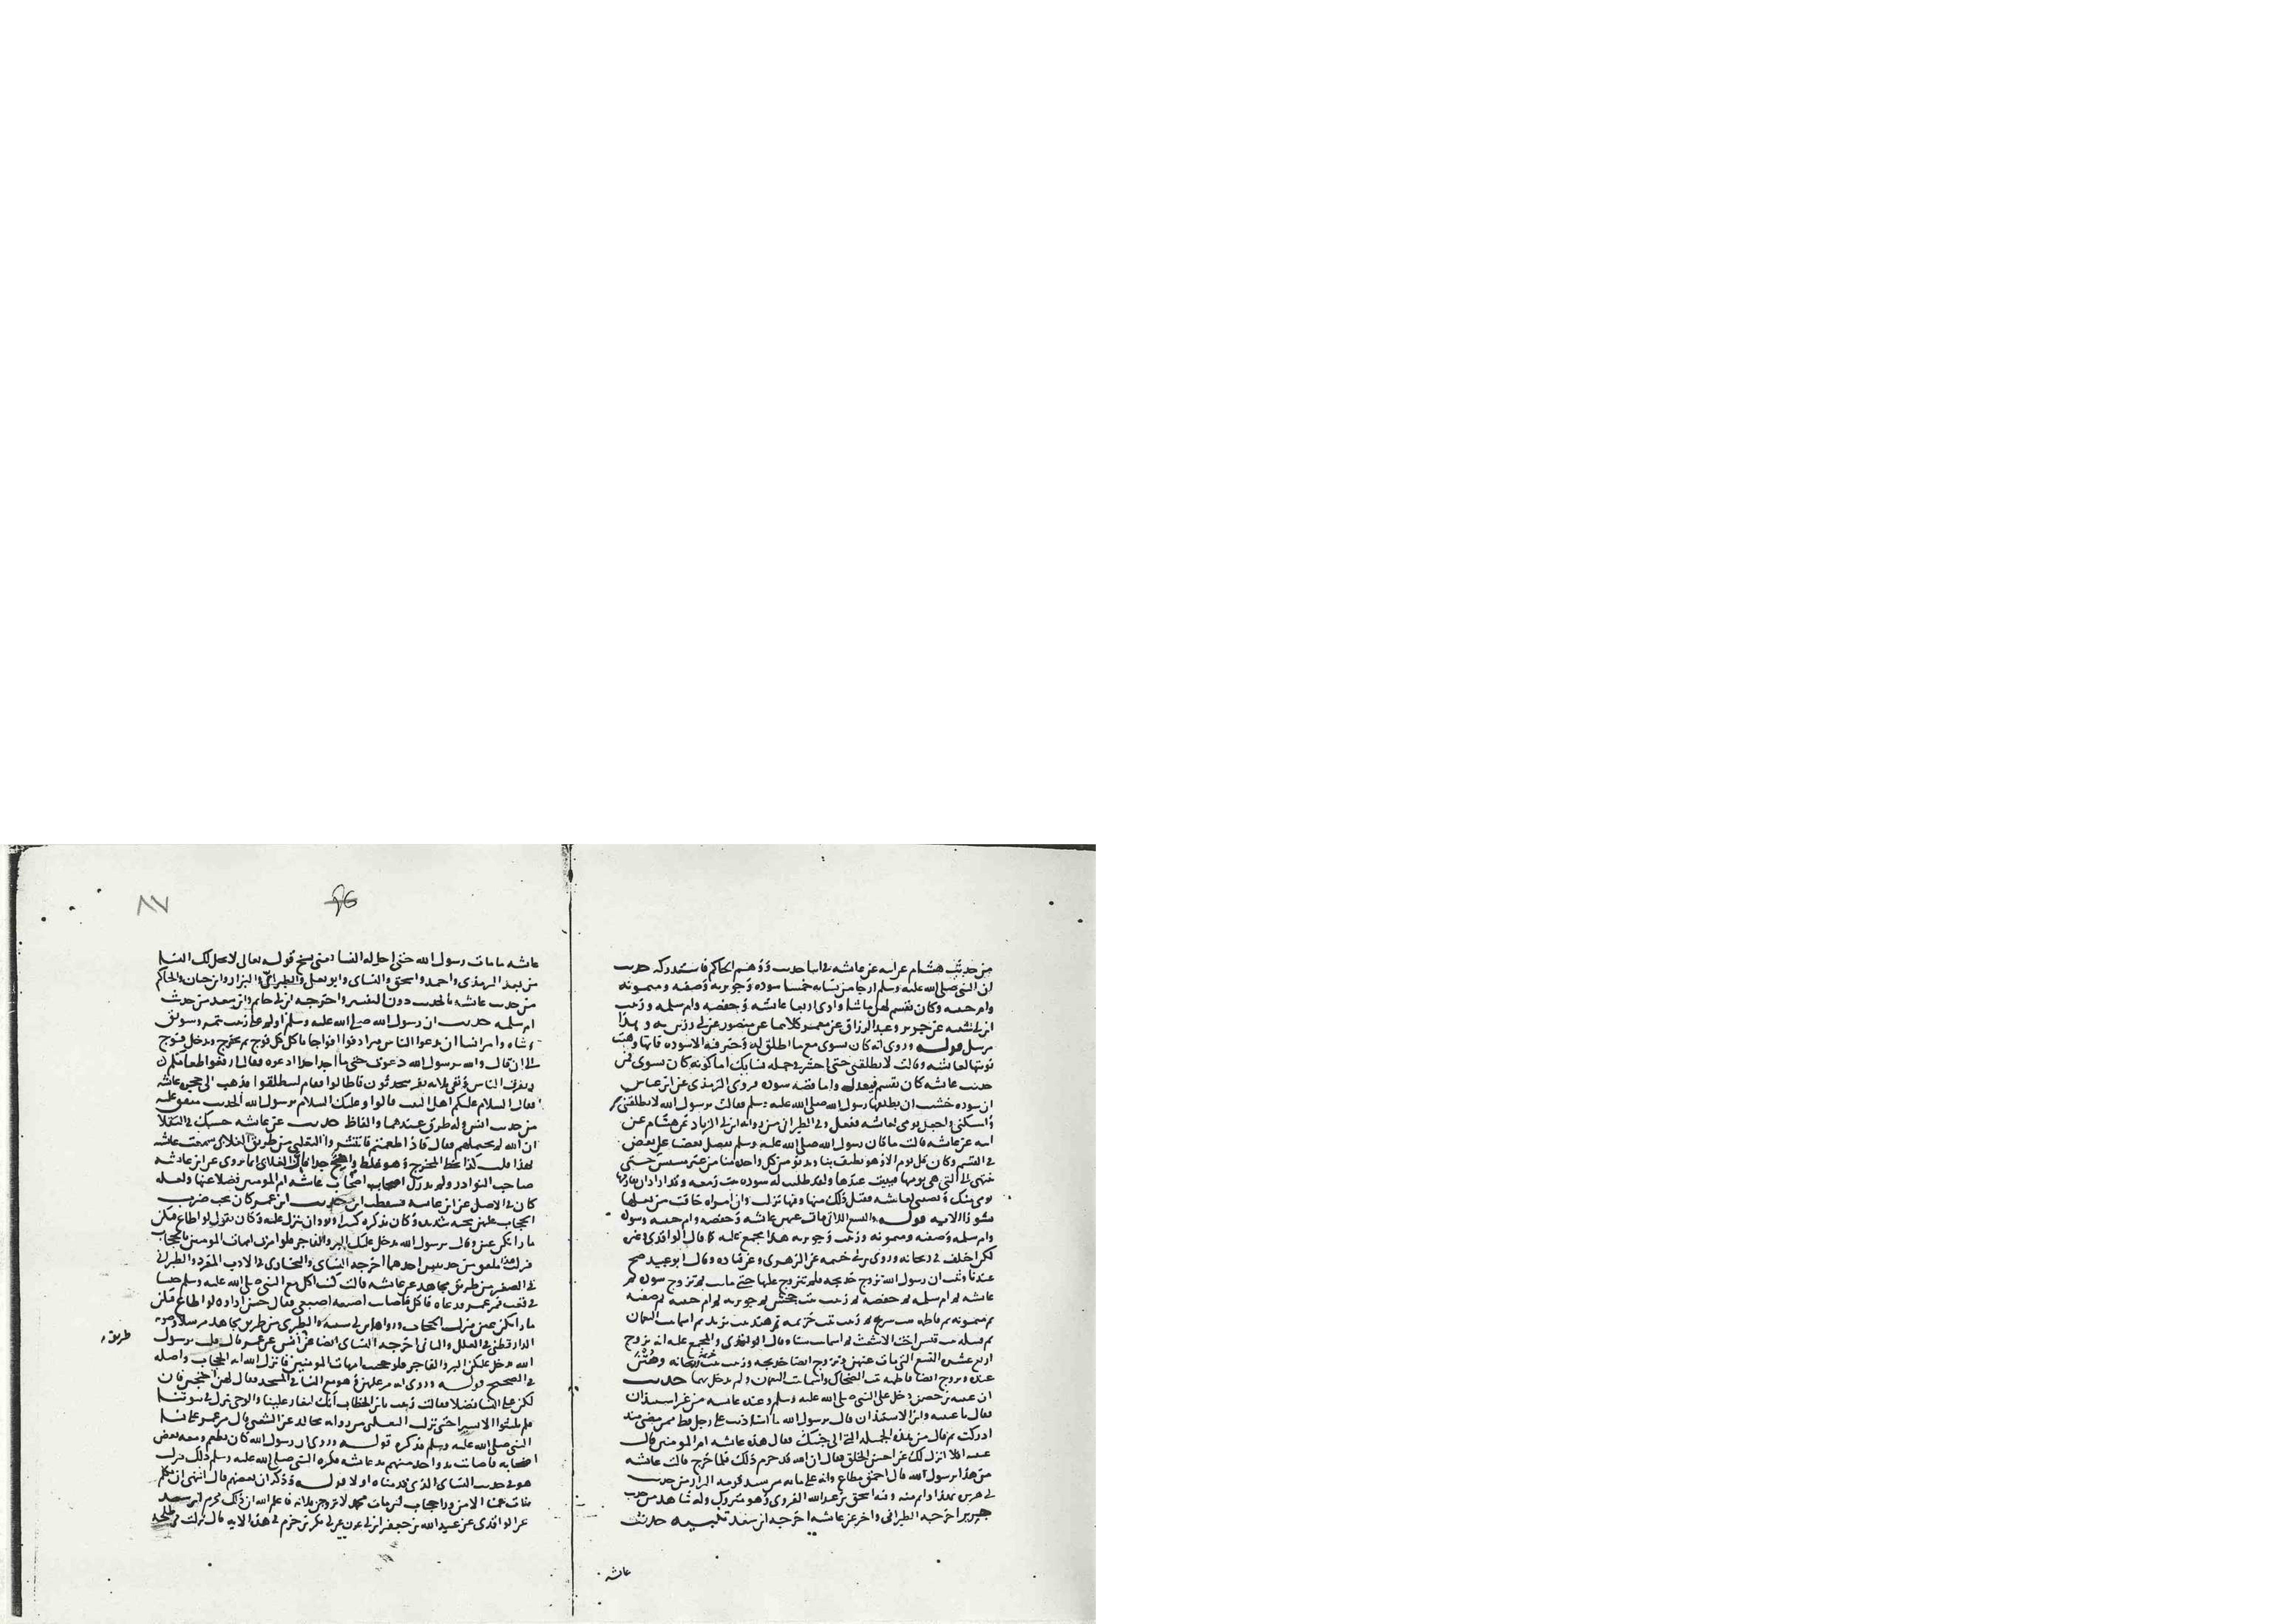 من حديث هشام عن ابيه عن عائشة في اثنا حديث ووهم الحاكم فاستدركه حديث
ان النبي صلى الله عليه وسلم ارجا من نسايه خمسا سوده وجويريه وصفيه وميمونه
وام حبيبه وكان يقسم لهن ماشا واوى اربعا عائشه وحفصه وام سلمه وزينب
ابن ابي شيبه عن جرير وعبد الرزاق عن معمر كلاهما عن منصور عن ابي رزين به وهذا
مرسل قوله وروى انه كان يسوى مع ما اطلق له وخير فيه الا سوده فانها وهبت
نوبتها لعائشه وقالت لا تطلقني حتى احشر في جمله نسايك اما كونه كان يسوى فمن
حديث عائشه كان يقسم فيعدل واما قصه سوده فروى الترمذي عن ابن عباس
ان سوده خشيت ان يطلقها رسول الله صلى الله عليه وسلم فقالت يرسول الله لا تطلقني
وامسكني واجعل يومى لعائشه ففعل وفي الطبراني من روايه ابن ابي الزناد عن هشام عن
ابيه عن عائشه قالت ما كان رسول الله صلى الله عليه وسلم يفضل بعضنا على بعض
في القسم وكان كل يوم الا وهو يطيف بنا ويدنو من كل واحده منا من غير مسيس حتى
ينتهى الى التي هي يومها فيبيت عندها ولقد طلبت له سوده بنت زمعه وقد اراد ان يفارقها
يومى منك ونصيبى لعائشه فقبل ذلك منها وفيها نزلت وان امراه خافت من بعلها
نشوزا الايه قوله والتسع اللاتي مات عنهن عائشه وحفصه وام حبيبه وسوده
وام سلمه وصفيه وميمونه وزينب وجويريه هذا مجمع عليه كما قال الواقدي وغيره
لكن اختلف في ريحانه وروى بن ابي خيثمه عن الزهرى وعن قتاده وقال ابو عبيد صح
عندنا وثبت ان رسول الله تزوج خديجه فلم تتزوج عليها حتى ماتت ثم تزوج سوده ثم
عائشه ثم ام سلمه ثم حفصه ثم زينب بنت جحش ثم جويريه ثم ام حبيبه ثم صفيه
ثم ميمونه ثم فاطمه بنت سريج ثم زينب بنت خزيمه ثم هند بنت يزيد ثم اسما بنت النعمان
ثم قتيله بنت قيس اخت الاشعث ثم اسما بنت سنا وقال الواقدي والمجمع عليه انه تزوج
اربع عشره التسع التي مات عنهن وتزوج ايضا خديجه وزينب بنت خزيمه وريحانه ومتن
عنده وتزوج ايضا فاطمه بنت الضحاك واسما بنت النعمان ولم يدخل بهما حديث
ان عيينه بن حصن دخل على النبي صلى الله عليه وسلم وعنده عائشه من غير استيذان
فقال يا عيينه واين الاستيذان قال يرسول الله ما استاذنت على رجل قط ممن مضى منذ
ادركت ثم قال من هذه الجميله التي الى جنبك فقال هذه عائشه ام المومنين قال
عيينه افلا انزل لك عن احسن الخلق فقال ان الله قد حرم ذلك فلما خرج قالت عائشه
من هذا يرسول الله قال احمق مطاع وانه على ما ترين سيد قومه البزار من حديث
ابي هريره بهذا واتم منه وفيه اسحق بن عبد الله الفروى وهو متروك وله شاهد من حديث
جرير اخرجه الطبراني واخر عن عائشه اخرجه ابن سعد تنبيه حديث
عائشه
عائشه ما مات رسول الله حتى احل له النسا يعني نسخ قوله تعالى لا يحل لك النسا
من بعد الترمذي واحمد واسحق والنساى وابو يعلى والطبراني والبزار وابن حبان والحاكم
من حديث عائشه بالحديث دون التفسير واخرجه ابن ابي حاتم وابن سعد من حديث
ام سلمه حديث ان رسول الله صلى الله عليه وسلم اولم على زينب بتمر وسويق
وشاه وامر انسا ان يدعوا الناس فترادفوا افواجا ياكل كل فوج ثم يخرج ويدخل فوج
الى ان قال والله يرسول الله دعوت حتى ما اجد احدا ادعوه فقال ارفعوا طعامكم
وتفرق الناس وبقي ثلاثه نفر يتحدثون فاطالوا فقام لينطلقوا فذهب الى حجره عائشه
فقال السلام عليكم اهل البيت قالوا وعليك السلام يرسول الله الحديث متفق عليه
من حديث انس وله طرق عندهما والفاظ حديث عن عائشه حسبك في الثقلا
ان الله لم يحتملهم فقال فاذا طعمتم فانتشروا الثعلبي من طريق الغلابي سمعت عائشه
بهذا قلت كذا بخط المخرج وهو غلط واضح جدا فان الغلابي انما روى عن ابن عائشه
صاحب النوادر ولم يدرك اصحاب اصحاب عائشه ام المومنين فضلا عنها ولعله
كان في الاصل عن ابن عائشه فسقطت ابن حديث ابن عمر كان يحب ضرب
الحجاب عليهن محبه شديده وكان يذكره كثيرا ويود ان ينزل عليه وكان يقول لو اطاع فيكن
ما راتكن عين وقال يرسول الله يدخل عليك البر والفاجر فلو امرت امهات المومنين بالحجاب
فنزلت هذا ملفق من حديثين احدهما اخرجه النساى والبخارى في الادب المفرد والطبراني
في الصغير من طريق مجاهد عن عائشه قالت كنت اكل مع النبي صلى الله عليه وسلم حيسا
في قعب فمر عمر فدعاه فاكل فاصابت اصبعه اصبعي فقال حس اواوه لو اطاع فيكن
ما راتكن عين فنزل الحجاب ورواه ابن ابي شيبه والطبرى من طريق مجاهد مرسلا وصوبه
طريق
الدارقطني في العلل والثاني اخرجه النساى ايضا عن انس عن عمر قال قلت يرسول
الله يدخل عليكن البر والفاجر فلو حجبت امهات المومنين فانزل الله ايه الحجاب واصله
في الصحيح قوله وروى انه مر عليهن وهو مع النسا في المسجد فقال لهن احتجبن فان
لكن على النسا فضلا فقالت زينب يا بن الخطاب انك لتغار علينا والوحى ينزل في بيوتنا
فلم يلبثوا الا يسيرا حتى نزلت الثعلبي من روايه مجالد عن الشعبي قال مر عمر على نسا
النبي صلى الله عليه وسلم فذكره قوله وروى ان رسول الله كان يطعم ومعه بعض
اصحابه فاصابت يد واحد منهم يد عائشه فكره النبي صلى الله عليه وسلم ذلك فنزلت
هو في حديث النساى الذي قدمناه اولا قوله وذكر ان بعضهم قال انهى ان نكلم
بنات عمنا الا من ورا حجاب لئن مات محمد لاتزوجن فلانه فاعلم الله ان ذلك محرم ابن سعد
عن الواقدى عن عبيد الله بن جعفر عن ابن ابي عون عن ابي بكر بن حزم في هذه الايه قال نزلت في طلحه